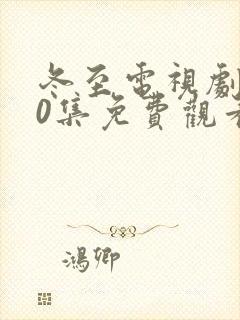 冬至電視劇
0集免費觀看
鴻卿